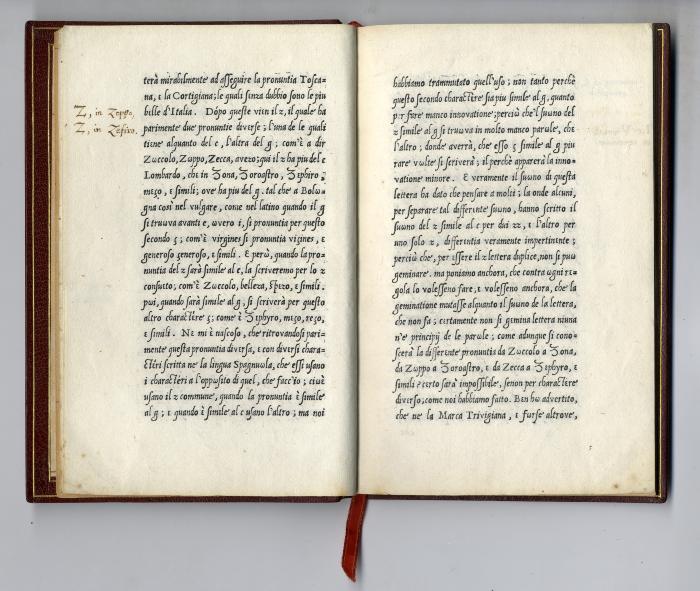 terà mirabilmente ad asseguire la pronuntia Tosca-
na, ε la Cortigiana; le quali sinza dubbio sono le piu
bεlle d'Italia. Dópo queste viεn il z, il quale ha
Z, in Zoppo,
parimente due pronuntie diverse; l'una de le quali
Ʒ, in Zafiro.
tiεne alquanto del c, l'altra del g; com'ὲ a dir
Zuccolo, Zωppo, Zecca, avezo; qui il z ha piu del c
Lombardo, che in Ʒona, Ʒoroastro, Ʒephiro,
mεʒo, ε simili; ove ha piu del g. tal che a Bolω-
gna così nel vulgare, come nel latino quando il g
si truωva avanti e, ωvero i, si pronuntia per questo
secondo ʒ; com'ὲ virgines si pronuntia viʒines, ε
generoso ʒeneroso, ε simili. E perὼ, quando la pro-
nuntia del z sarà simile al c, la scriveremo per lo z
consuεto; com'ὲ Zuccolo, bellεza, spεzo, ε simili.
pωi, quando sarà simile al g, si scriverà per questo
altro charactεre ʒ; come ὲ Ʒephyro, mεʒo, reʒo,
ε simili. Nε mi ὲ nascoso, che ritrovandosi pari-
mente questa pronuntia diversa, ε con diversi chara-
ctεri scritta ne' la lingua Spagnuωla, che essi usano
i charactεri a l'oppωsito di quel, che facc'io; ciωὲ
usano il z commune, quando la pronuntia ὲ simile
al g; ε quando ὲ simile al c usano l'altro; ma noi
habbiamo trammutato quell'uso; non tanto perchὲ
questo secondo charactεre sia piu simile al g, quanto
pεr fare manco innovatione; perciὼ che'l suωno del
z simile al g si truωva in molto manco parωle, che
l'altro; donde averrà, che esso ʒ simile al g piu
rare vωlte si scriverà; il perchὲ apparerà la inno-
vatione minore. E veramente il suωno di questa
lettera ha dato che pensare a molti; la onde alcuni,
per separare tal differεnte suωno, hanno scritto il
suωno del z simile al c per dui zz, ε l'altro per
uno solo z, differεntia veramente impertinεnte;
perciὼ che, per εssere il z lettera duplice, non si puω
geminare. ma poniamo anchora, che contra ωgni rε-
gola lo volesseno fare, ε volesseno anchora, che la
geminatione mutasse alquanto il suωno de la lettera,
che non fa; cεrtamente non si gemina lettera niuna
n'e principij de le parωle; come adunque si cono-
scerà la differεnte pronuntia da Zuccolo a Ʒona,
da Zωppo a Ʒoroastro, ε da Zecca a Ʒephyro, ε
simili? cεrto sarà impossibile, senon per charactεre
divεrso; come noi habbiamo fatto. Bεn hω advertito,
che ne la Marca Trivigiana, ε forse altrove,